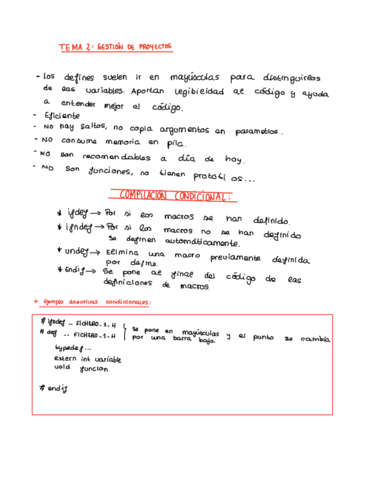 TEMA 2: GESTIÓN DE PROYECTOS
- Los defines suelen ir en mayúsculas para distinguirlos
de las variables. Aportan legibilidad al código y ayuda
a entender mejor el código.
- Eficiente
- NO hay saltos, no copia argumentos en parametros.
- NO consume memoria en pila.
- NO son recomendables a día de hoy.
- NO son funciones, no tienen prototi os...
COMPILACIÓN CONDICIONAL:
* ifdef → Por si los macros se han definido.
* ifndef → Por si los macros no se han definido
se definen automáticamente.
* undef → Elimina una macro previamente definida
por define.
* Endif → Se pone al final del código de las
definiciones de macros.
* Ejemplo directivas condicionales:
# ifndef _ FICHERO_1_H
# def _ _ FICHERO_1_H
Se pone en mayúsculas y el punto se cambia
por una barra baja
typedef ...
extern int variable
void funcion
# endif